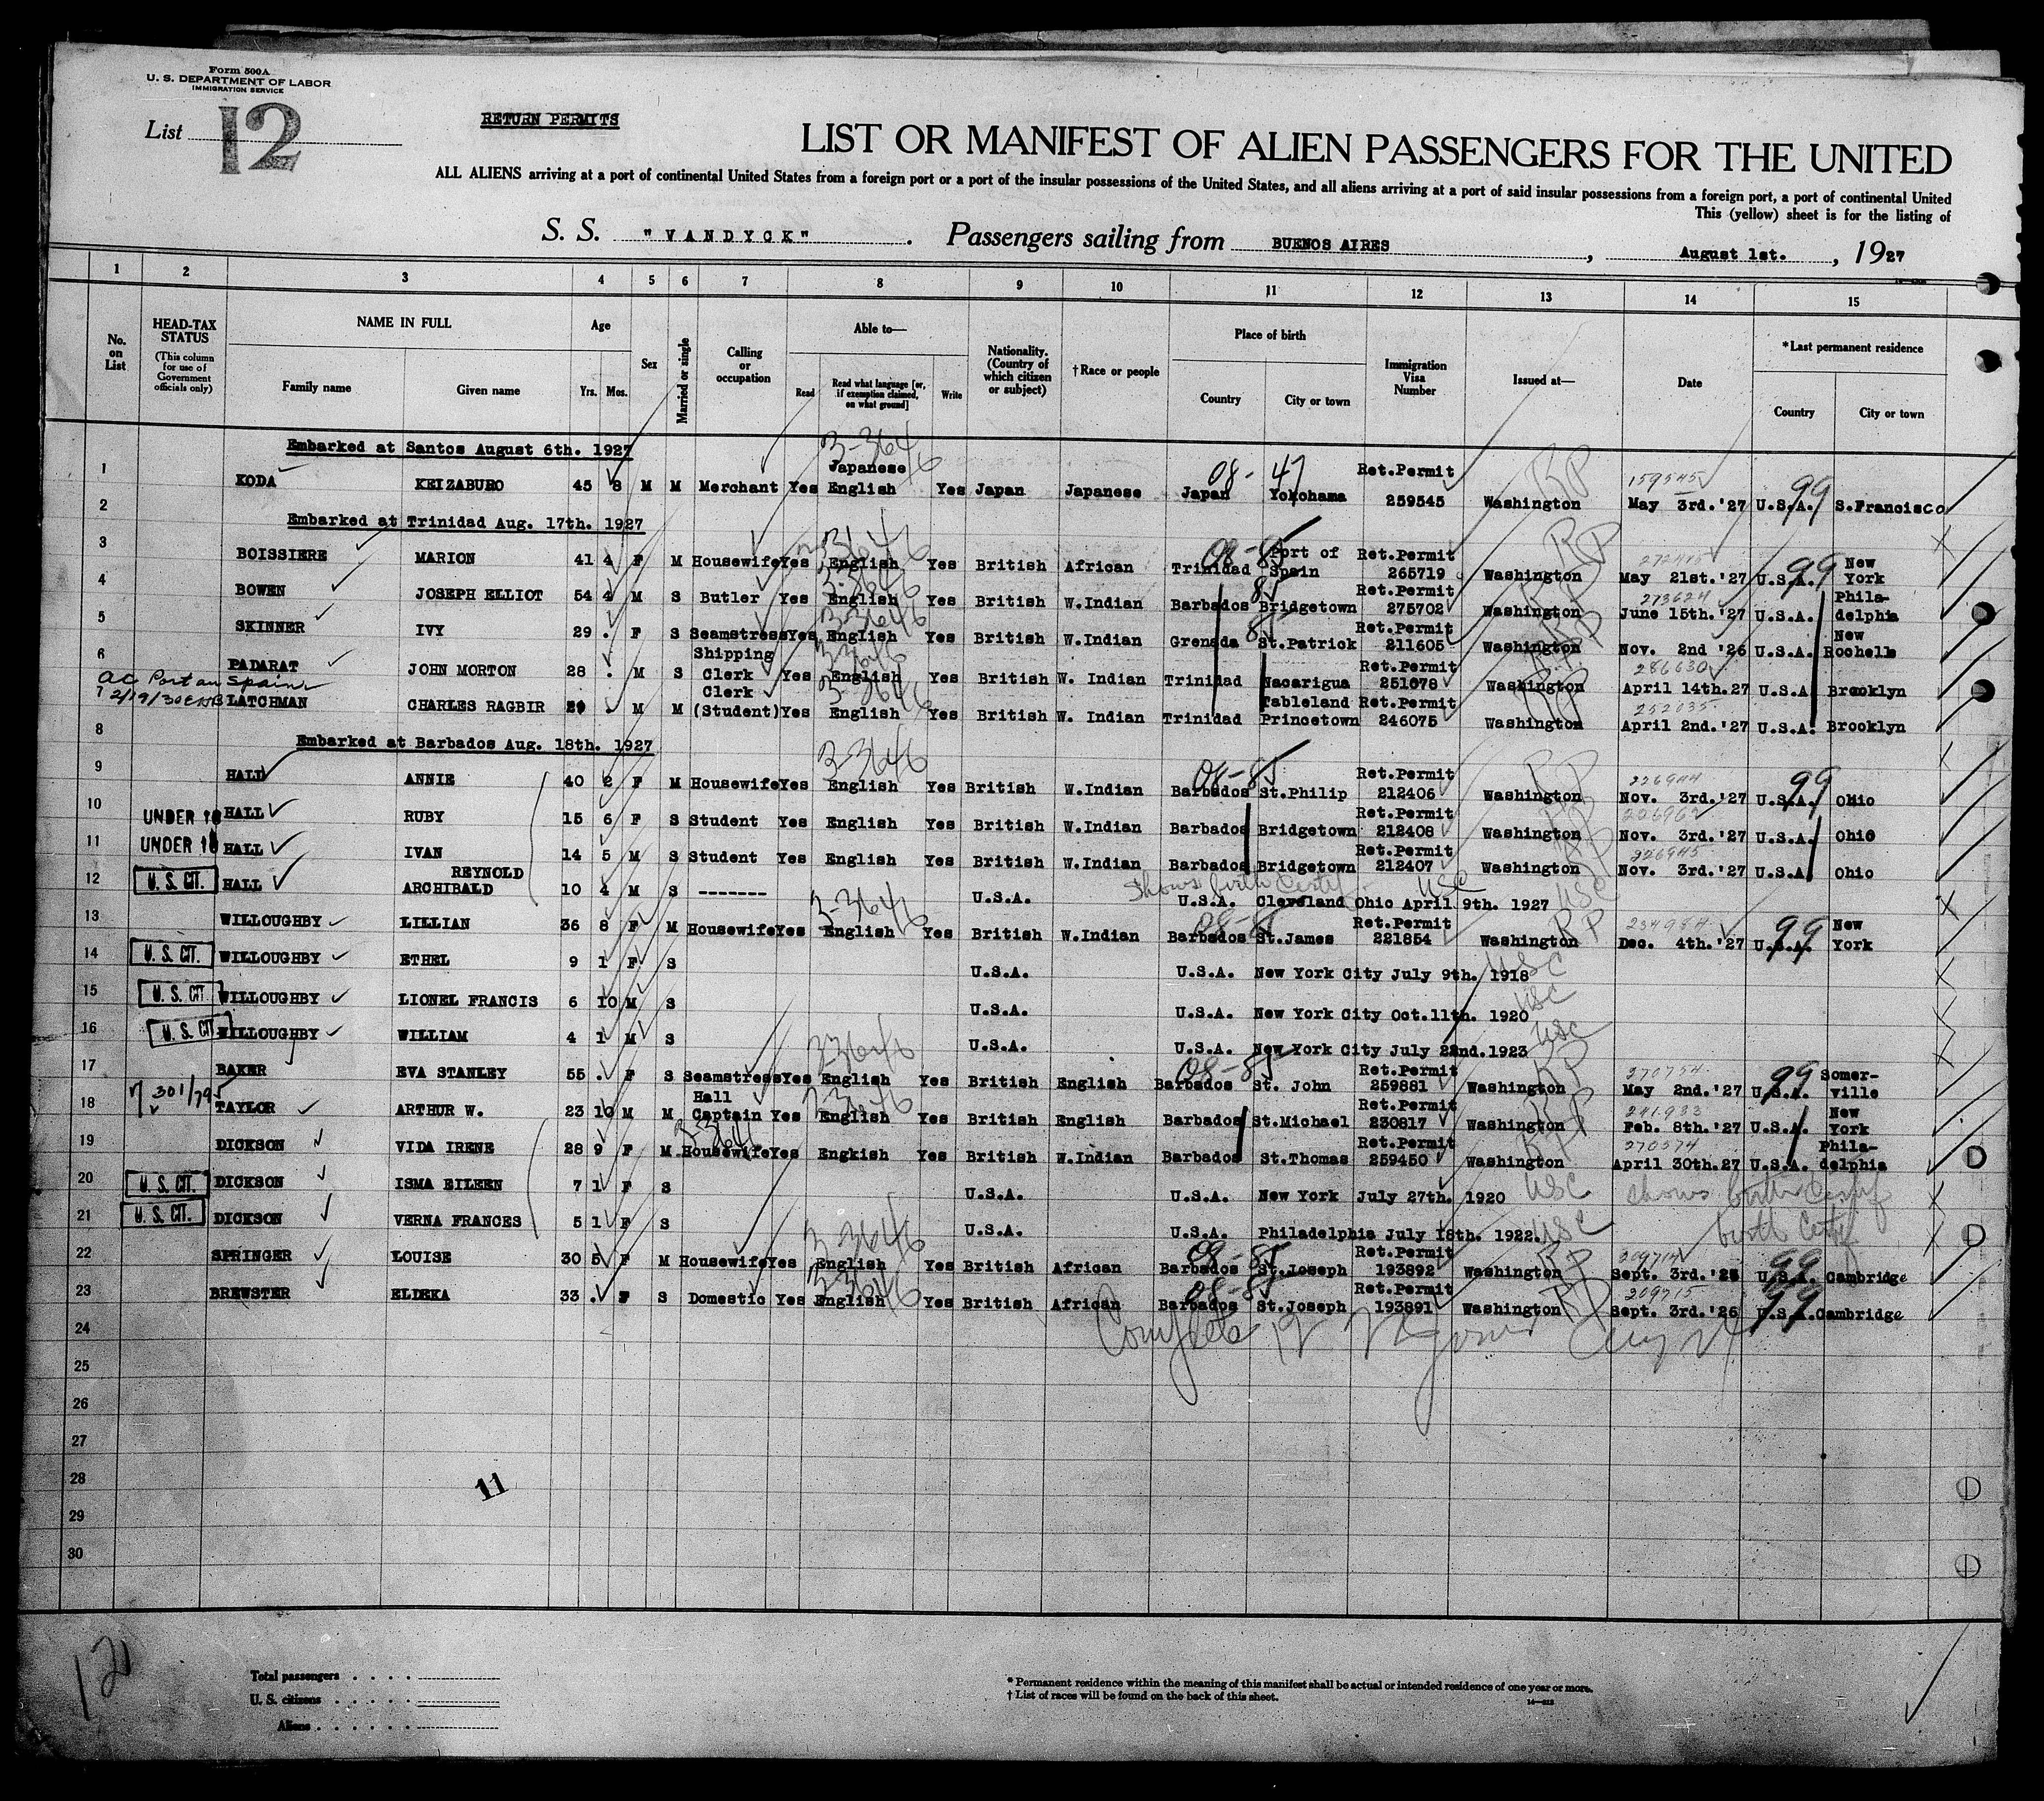 Form 500A
U. S. DEPARTMENT OF LABOR
IMMIGRATION SERVICE
List 12
RETURN PERMITS
LIST OR MANIFEST OF ALIEN PASSENGERS FOR THE UNITED
ALL ALIENS arriving at a port of continental United States from a foreign port or a port of the insular possessions of the United States, and all aliens arriving at a port of said insular possessions from a foreign port, a port of continental United
This (yellow) sheet is for the listing of
S. S. "VANDYCK" . Passengers sailing from BUENOS AIRES , August 1st. , 1927
1 2 3 4 5 6 7 8 9 10 11 12 13 14 15
No. on List
HEAD-TAX STATUS (This column for use of Government officials only)
NAME IN FULL
Family name Given name
Age Yrs. Mos.
Sex
Married or single
Calling or occupation
Able to—
Read Read what language [or, if exemption claimed, on what ground] Write
Nationality. (Country of which citizen or subject)
†Race or people
Place of birth
Country City or town
Immigration Visa Number
Issued at—
Date
*Last permanent residence
Country City or town
Embarked at Santos August 6th. 1927
3-3646
08-47
159545
1 KODA KEIZABURO 45 8 M M Merchant Yes Japanese English Yes Japan Japanese Japan Yokohama Ret.Permit 259545 Washington RP May 3rd.'27 U.S.A. 99 S.Francisco
2
Embarked at Trinidad Aug. 17th. 1927
3 BOISSIERE MARION 41 4 F M Housewife Yes English Yes British African Trinidad Port of Spain Ret.Permit 265719 Washington RP May 21st.'27 U.S.A. 99 New York
4 BOWEN JOSEPH ELLIOT 54 4 M S Butler Yes English Yes British W.Indian Barbados Bridgetown Ret.Permit 275702 Washington 273624 June 15th.'27 U.S.A. Philadelphia
5 SKINNER IVY 29 . F S Seamstress Yes English Yes British W.Indian Grenada St.Patrick Ret.Permit 211605 Washington Nov. 2nd '26 U.S.A. New Rochelle
6 PADARAT JOHN MORTON 28 . M S Shipping Clerk Yes English Yes British W. Indian Trinidad Nacarigua Ret.Permit 251078 Washington 286630 April 14th.27 U.S.A Brooklyn
2/19/30
7 LATCHMAN CHARLES RAGBIR 29 . M M Clerk (Student) Yes English Yes British W. Indian Trinidad Tableland Princetown Ret.Permit 246075 Washington 252035 April 2nd.'27 U.S.A. Brooklyn
8
Embarked at Barbados Aug. 18th. 1927
3-3646
08-85
9 HALL ANNIE 40 2 F M Housewife Yes English Yes British W.Indian Barbados St.Philip Ret.Permit 212406 Washington RP 226944 Nov. 3rd.'27 U.S.A. 99 Ohio
10 UNDER 16 HALL RUBY 15 6 F S Student Yes English Yes British W.Indian Barbados Bridgetown Ret.Permit 212408 Washington Nov. 3rd.'27 U.S.A. Ohio
11 UNDER 16 HALL IVAN 14 5 M S Student Yes English Yes British W.Indian Barbados Bridgetown Ret.Permit 212407 Washington 226945 Nov. 3rd.'27 U.S.A. Ohio
12 U. S. CIT. HALL REYNOLD ARCHIBALD 10 4 M S ------- U.S.A. U.S.A. Cleveland Ohio April 9th. 1927 USC
shows birth Certif. USC
13 WILLOUGHBY LILLIAN 36 8 F M Housewife Yes 3-3646 English Yes British W.Indian Barbados 08-85 St.James Ret.Permit 221854 Washington RP 234954 Dec. 4th.'27 U.S.A. 99 New York
14 U. S. CIT. WILLOUGHBY ETHEL 9 1 F S U.S.A. U.S.A. New York City July 9th. 1918 USC
15 U. S. CIT WILLOUGHBY LIONEL FRANCIS 6 10 M S U.S.A. U.S.A. New York City Oct.11th. 1920 USC
16 U. S. CIT WILLOUGHBY WILLIAM 4 1 M S U.S.A. U.S.A. New York City July 22nd.1923 USC
17 BAKER EVA STANLEY 55 . F S Seamstress Yes 33646 English Yes British English Barbados 08-85 St. John Ret.Permit 259881 Washington RP 270754 May 2nd.'27 U.S.A. 99 Somerville
301/795
18 TAYLOR ARTHUR W. 23 10 M M Hall Captain Yes English Yes British English Barbados St.Michael Ret.Permit 230817 Washington RP 241933 Feb. 8th.'27 U.S.A. New York
19 DICKSON VIDA IRENE 28 9 F M Housewife Yes Engkish Yes British W.Indian Barbados St.Thomas Ret.Permit 259450 Washington 270574 April 30th.27 U.S.A. Philadelphia
20 U. S. CIT. DICKSON ISMA EILEEN 7 1 F S U.S.A. U.S.A. New York July 27th. 1920 USC shows birth Certif
21 U. S. CIT. DICKSON VERNA FRANCES 5 1 F S U.S.A. U.S.A. Philadelphia July 18th. 1922. USC birth Certif
22 SPRINGER LOUISE 30 5 F M Housewife Yes 3-3646 English Yes British African Barbados 08-85 St.Joseph Ret.Permit 193892 Washington RP 209714 Sept. 3rd.'26 U.S.A. 99 Cambridge
23 BREWSTER ELDEKA 33 . F S Domestic Yes 3-3646 English Yes British African Barbados 08-85 St.Joseph Ret.Permit 193891 Washington RP 209715 Sept. 3rd.'26 U.S.A. 99 Cambridge
24 Complete
25
26
27
28
11
29
30
12
Total passengers . . . .
U. S. citizens . . . . .
Aliens . . . . . .
* Permanent residence within the meaning of this manifest shall be actual or intended residence of one year or more.
† List of races will be found on the back of this sheet.